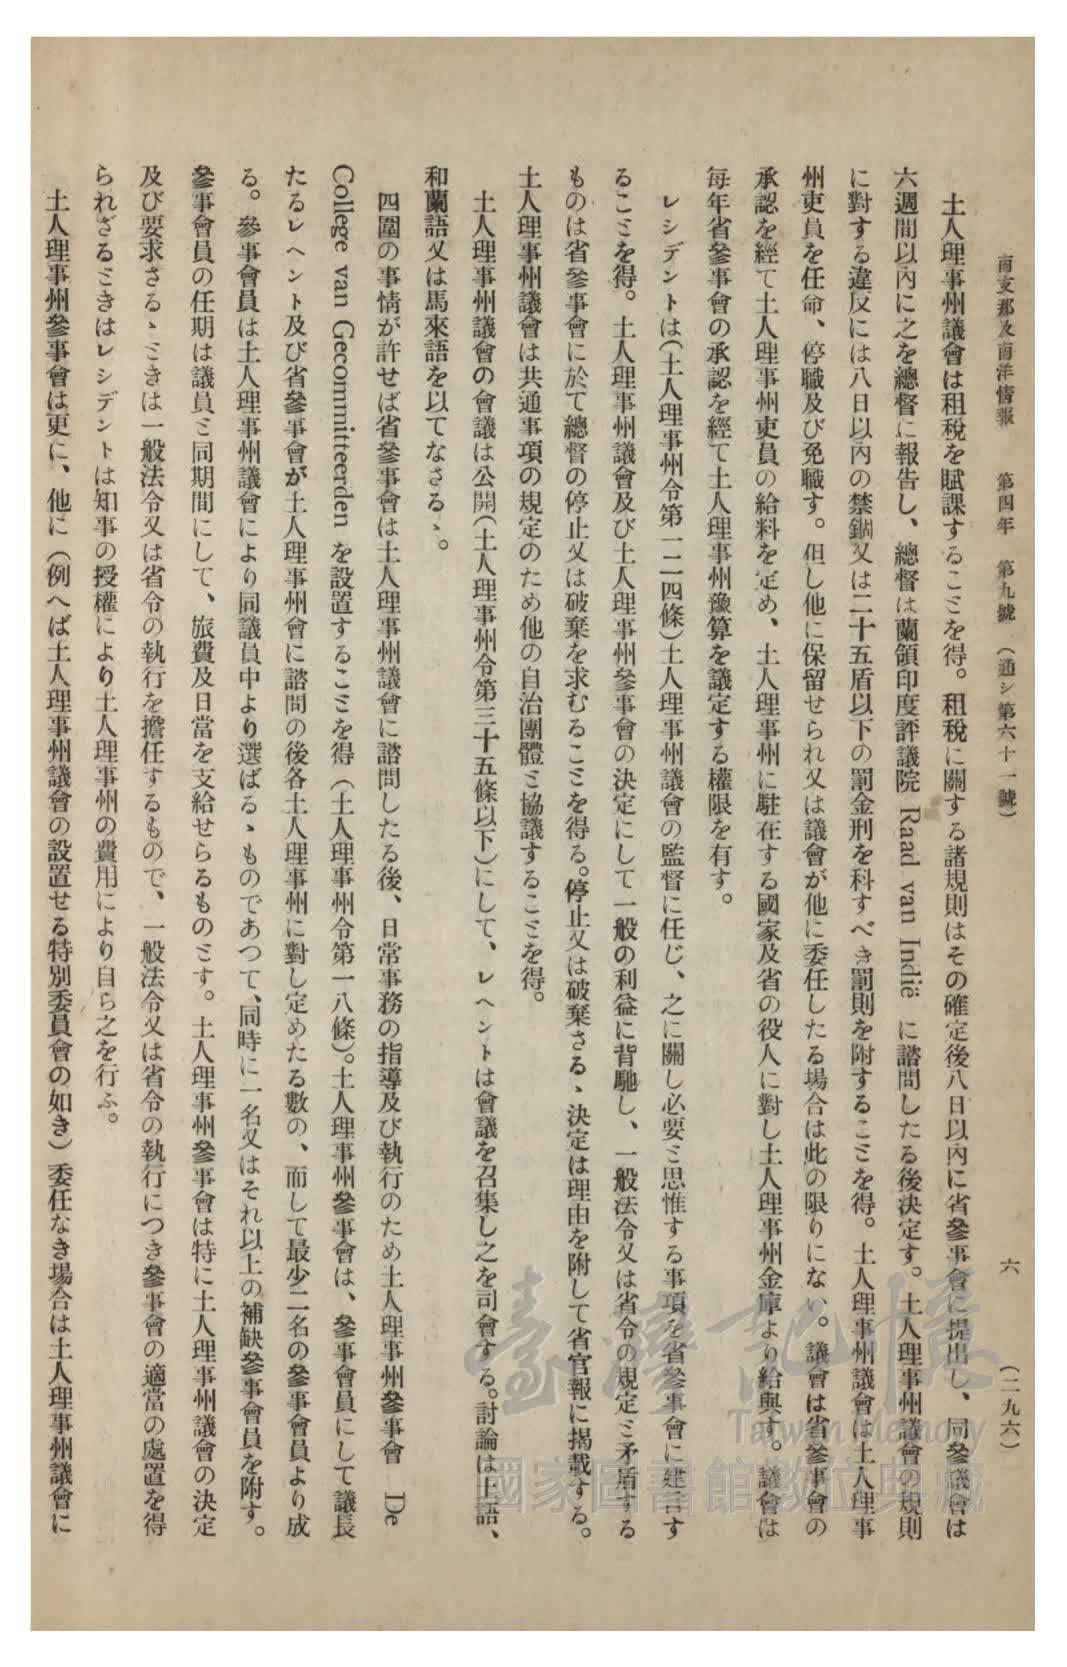 南支那及南洋情報　第四年　第九號　（通シ第六十一號）　六　（二九六）
土人理事州議會は租税を賦課することを得。租税に關する諸規則はその確定後八日以内に省參事會に提出し、同參議會は
六週間以内に之を總督に報告し、總督は蘭領印度評議院 Raad van Indië に諮問したる後決定す。土人理事州議會の規則
に對する違反には八日以内の禁錮又は二十五盾以下の罰金刑を科すべき罰則を附することを得。土人理事州議會は土人理事
州吏員を任命、停職及び免職す。但し他に保留せられ又は議會が他に委任したる場合は此の限りにない。議會は省參事會の
承認を經て土人理事州吏員の給料を定め、土人理事州に駐在する國家及省の役人に對し土人理事州金庫より給與す。議會は
毎年省參事會の承認を經て土人理事州豫算を議定する權限を有す。
レシデントは（土人理事州令第一二四條）土人理事州議會の監督に任じ、之に關し必要と思惟する事項を省參事會に建言す
ることを得。土人理事州議會及び土人理事州參事會の決定にして一般の利益に背馳し、一般法令又は省令の規定と矛盾する
ものは省參事會に於て總督の停止又は破棄を求むることを得る。停止又は破棄さるゝ決定は理由を附して省官報に揭載する。
土人理事州議會は共通事項の規定のため他の自治團體と協議することを得。
土人理事州議會の會議は公開（土人理事州令第三十五條以下）にして、レヘントは會議を召集し之を司會する。討論は土語、
和蘭語又は馬來語を以てなさるゝ。
四圍の事情が許せば省參事會は土人理事州議會に諮問したる後、日常事務の指導及び執行のため土人理事州參事會 De
College van Gecommitteerden を設置することを得（土人理事州令第一八條）。土人理事州參事會は、參事會員にして議長
たるレヘント及び省參事會が土人理事州會に諮問の後各土人理事州に對し定めたる數の、而して最少二名の參事會員より成
る。參事會員は土人理事州議會により同議員中より選ばるゝものであつて、同時に一名又はそれ以上の補缺參事會員を附す。
參事會員の任期は議員と同期間にして、旅費及日當を支給せらるものとす。土人理事州參事會は特に土人理事州議會の決定
及び要求さるゝときは一般法令又は省令の執行を擔任するもので、一般法令又は省令の執行につき參事會の適當の處置を得
られざるときはレシデントは知事の授權により土人理事州の費用により自ら之を行ふ。
土人理事州參事會は更に、他に（例へば土人理事州議會の設置せる特別委員會の如き）委任なき場合は土人理事州議會に
臺灣記憶
Taiwan Memory
國家圖書館數位典藏